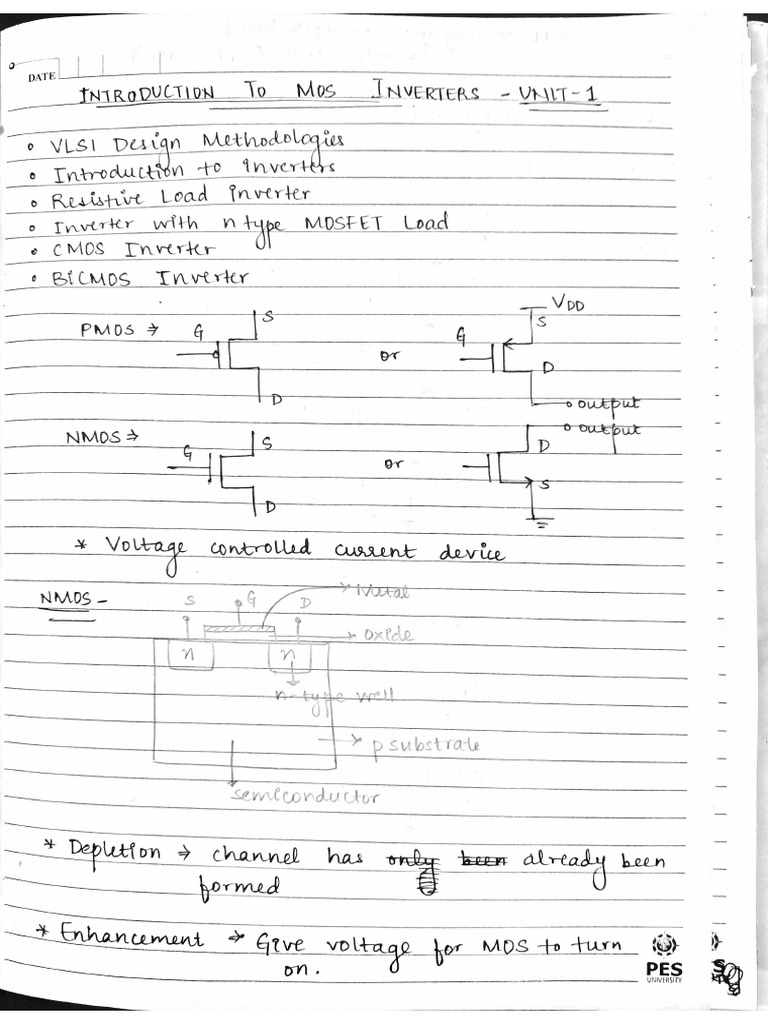 DATE
INTRODUCTION TO MOS INVERTERS - UNIT-1
• VLSI Design Methodologies
• Introduction to inverters
• Resistive Load inverter
• Inverter with n type MOSFET Load
• CMOS Inverter
• BiCMOS Inverter
PMOS → G S D or G VDD S D output
NMOS → G S D or output D S
* Voltage controlled current device
NMOS - S G D Metal
oxide
n n
n-type well
p substrate
semiconductor
* Depletion → channel has only been already been
formed
* Enhancement → Give voltage for MOS to turn
on.
PES
UNIVERSITY